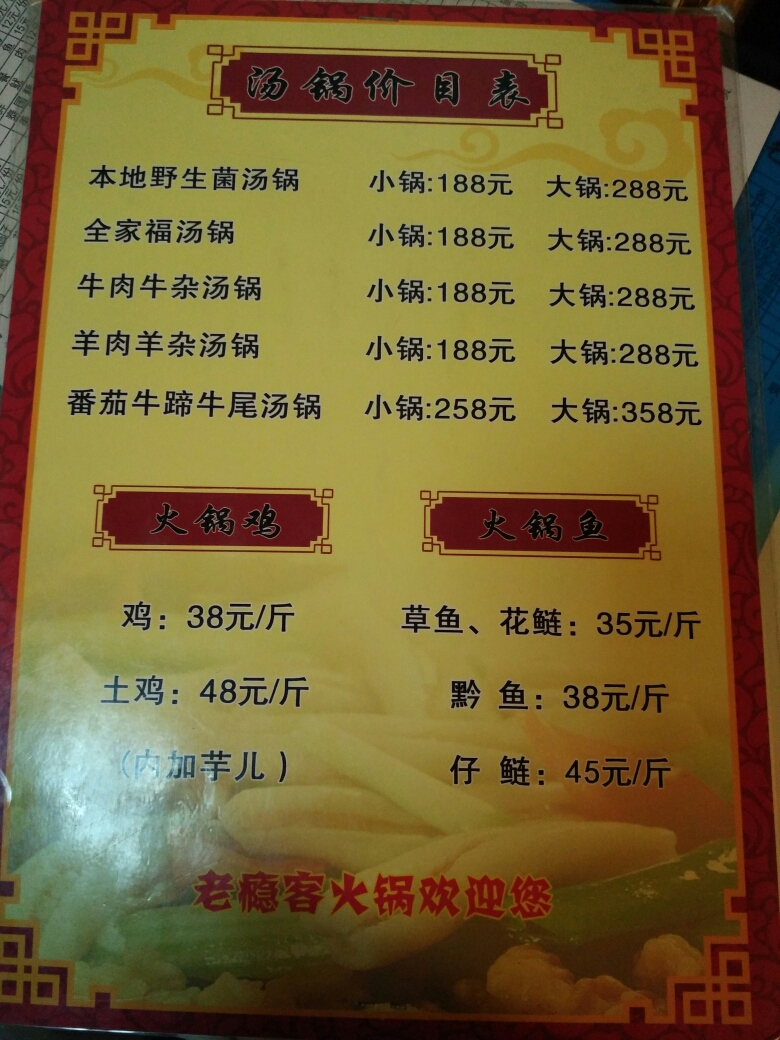 汤锅价目表
本地野生菌汤锅 小锅:188元 大锅:288元
全家福汤锅 小锅:188元 大锅:288元
牛肉牛杂汤锅 小锅:188元 大锅:288元
羊肉羊杂汤锅 小锅:188元 大锅:288元
番茄牛蹄牛尾汤锅 小锅:258元 大锅:358元
火锅鸡 火锅鱼
鸡：38元/斤 草鱼、花鲢：35元/斤
土鸡：48元/斤 黔 鱼：38元/斤
（内加芋儿） 仔 鲢：45元/斤
老瘾客火锅欢迎您